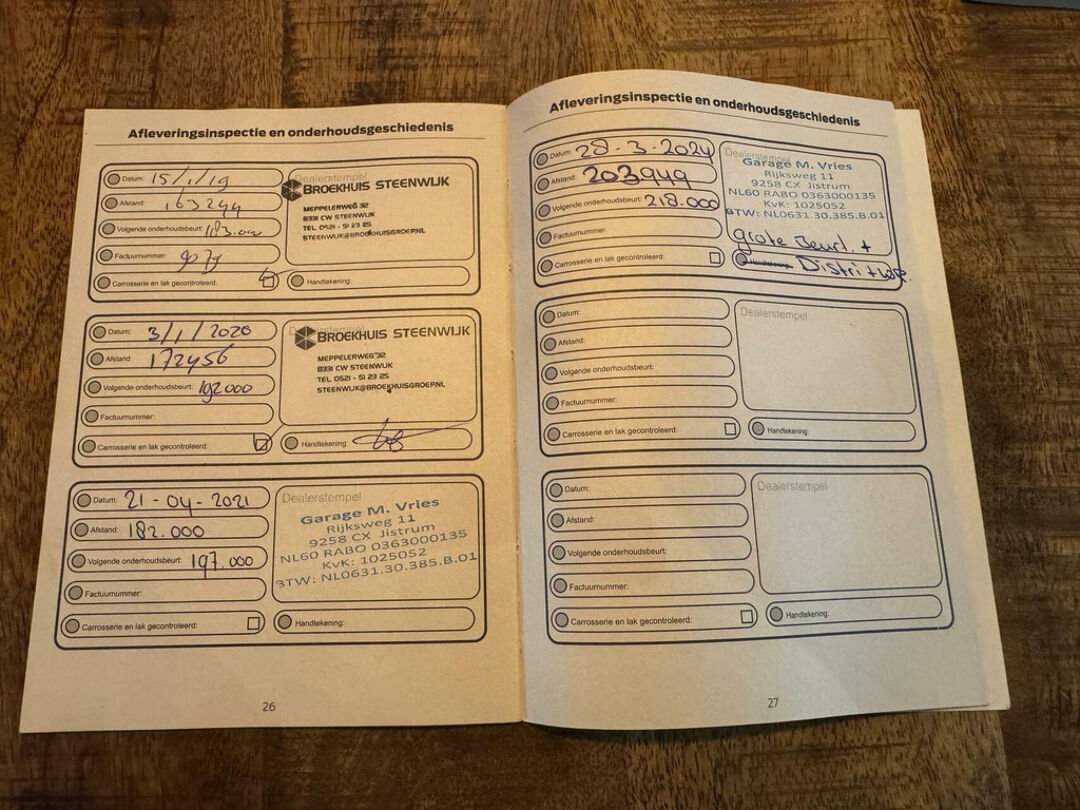 Afleveringsinspectie en onderhoudsgeschiedenis
Datum: 15/1/19
Afstand: 163244
Volgende onderhoudsbeurt: 183.000
Factuurnummer:
Carrosserie en lak gecontroleerd:
Dealerstempel
BROEKHUIS STEENWIJK
MEPPELERWEG 32
8331 CW STEENWIJK
TEL 0521 - 51 23 25
STEENWIJK@BROEKHUISGROEP.NL
Handtekening:
Datum: 3/1/2020
Afstand: 172456
Volgende onderhoudsbeurt: 192000
Factuurnummer:
Carrosserie en lak gecontroleerd:
Dealerstempel
BROEKHUIS STEENWIJK
MEPPELERWEG 32
8331 CW STEENWIJK
TEL 0521 - 51 23 25
STEENWIJK@BROEKHUISGROEP.NL
Handtekening:
Datum: 21-04-2021
Afstand: 182.000
Volgende onderhoudsbeurt: 197.000
Factuurnummer:
Carrosserie en lak gecontroleerd:
Dealerstempel
Garage M. Vries
Rijksweg 11
9258 CX Jistrum
NL60 RABO 0363000135
KvK: 1025052
BTW: NL0631.30.385.B.01
Handtekening:
26
Afleveringsinspectie en onderhoudsgeschiedenis
Datum: 28-3-2024
Afstand: 203949
Volgende onderhoudsbeurt: 218.000
Factuurnummer:
Carrosserie en lak gecontroleerd:
Dealerstempel
Garage M. Vries
Rijksweg 11
9258 CX Jistrum
NL60 RABO 0363000135
KvK: 1025052
BTW: NL0631.30.385.B.01
grote Beurt. +
Handtekening: Distri +
Datum:
Afstand:
Volgende onderhoudsbeurt:
Factuurnummer:
Carrosserie en lak gecontroleerd:
Dealerstempel
Handtekening:
Datum:
Afstand:
Volgende onderhoudsbeurt:
Factuurnummer:
Carrosserie en lak gecontroleerd:
Dealerstempel
Handtekening:
27